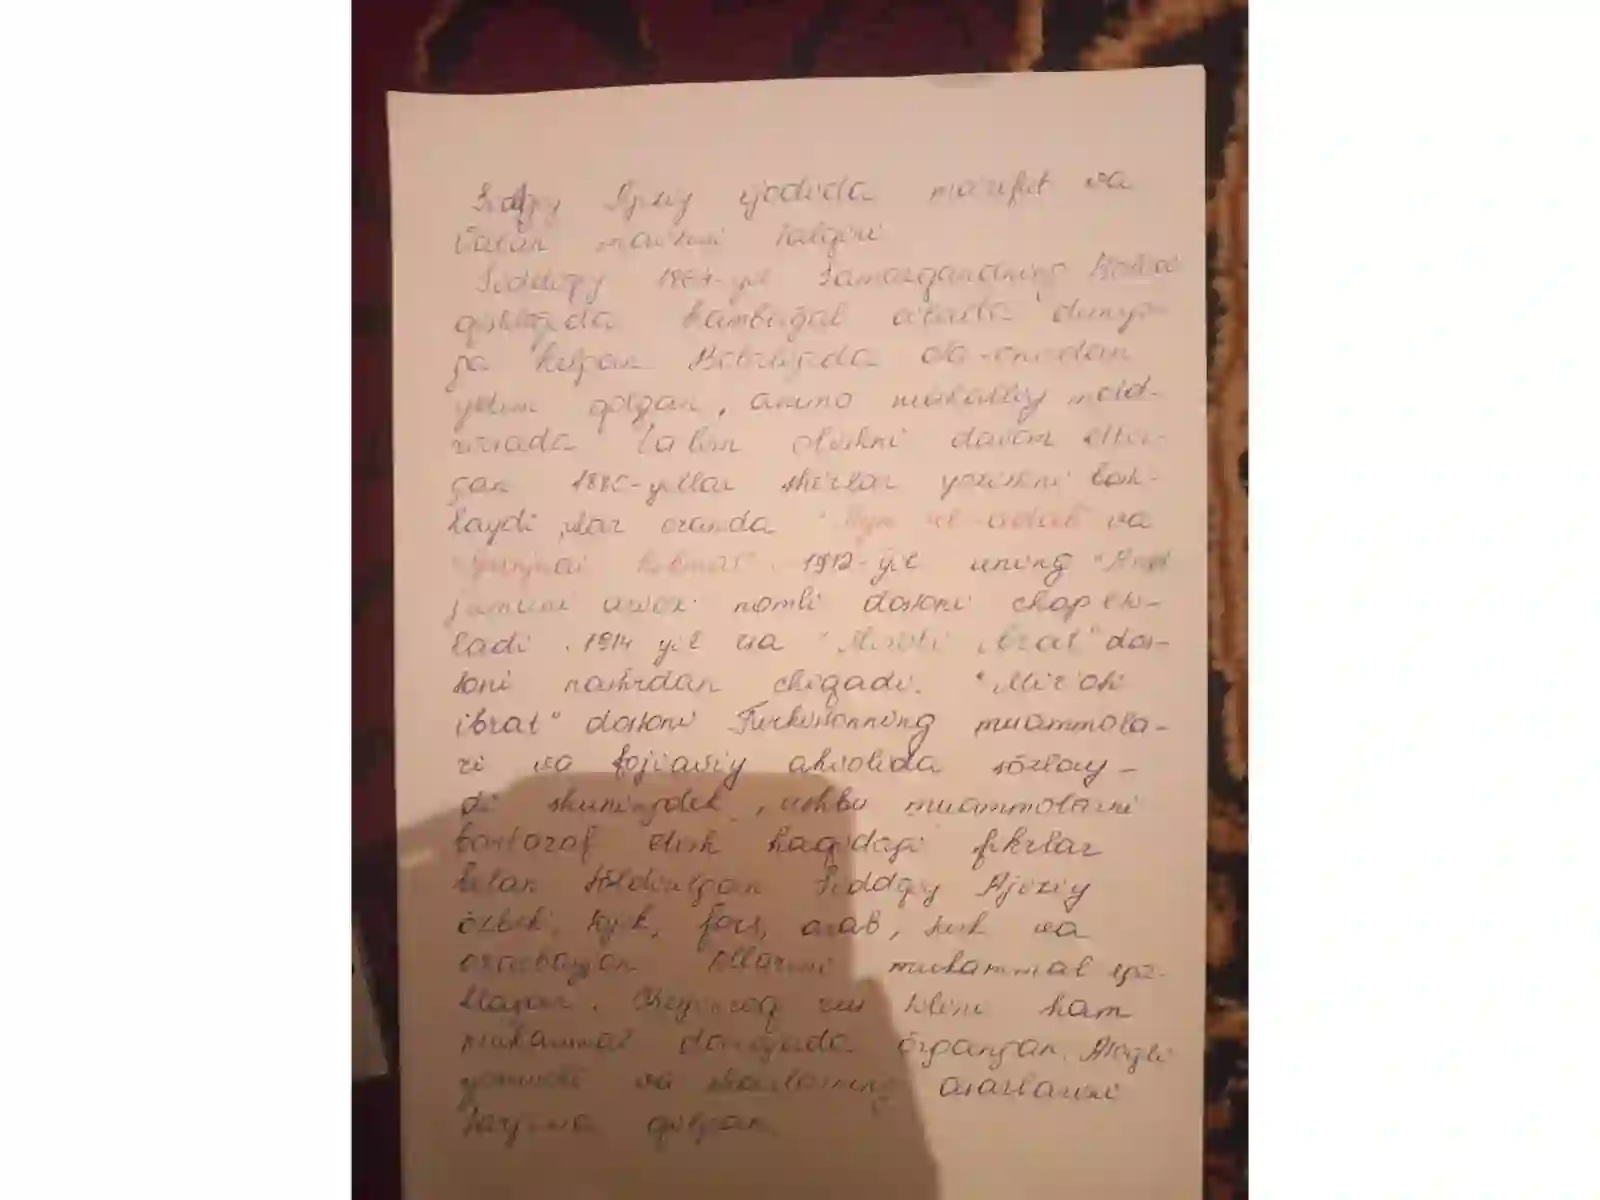 Ajziy ijodida ma'rifat va
Vatan mavzusi talqini
Siddiqiy 1864-yil Samarqandning
qishlog'ida kambag'al oilada dunyo-
ga kelgan Bolaligida ota-onadan
yetim qolgan, ammo mahalliy mad-
rasada ta'lim olishni davom ettir-
gan 1880-yillar she'rlar yozishni bosh-
laydi ular orasida "Ayn ul-adab" va
1912-yil uning
nomli dostoni chop eti-
ladi. 1914 yil esa "Miroti ibrat" dos-
toni nashrdan chiqadi. "Mir'oti
ibrat" dostoni Turkistonning muammola-
ri va fojiaviy ahvolida sõzlay-
di shuningdek, ushbu muammolarni
bartaraf etish haqidagi fikrlar
bilan tõldirilgan Siddqiy Ajziy
õzbek, tojik, fors, arab, turk va
ozarbayjon tillarini mukammal
rus tilini ham
mukammal darajada õrgangan.
yozuvchi va shoirlarning asarlarini
tarjima qilgan